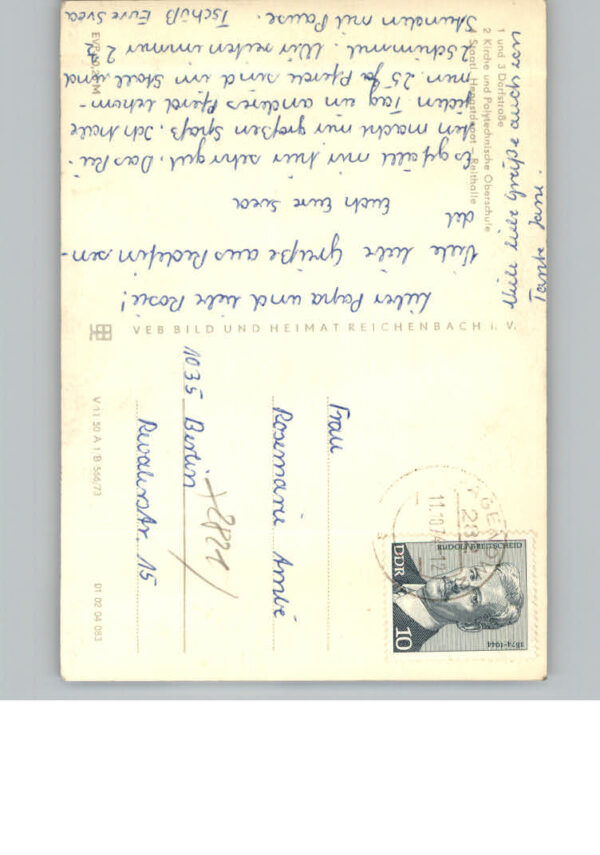 1 und 3 Dorfstraße
2 Kirche und Polytechnische Oberschule
4 Staatl. Hengstdepot – Reithalle
Lieber Papa und liebe Rosi!
Viele liebe Grüße aus Redefin sen-
det
Euch Eure Svea
Es gefällt mir hier sehr gut. Das Rei-
ten macht mir großen Spaß. Ich habe
jeden Tag ein anderes Pferd bekom-
men. 25 Pferde sind im Stall und
2 Schimmel. Wir reiten immer 2
Stunden mit Pause. Tschüß Eure Svea
Viele liebe Grüße auch von
Tante Jani.
EVP 0,20 M
VEB BILD UND HEIMAT REICHENBACH i. V.
V 11 50 A 1 B 566/73
01 02 04 083
Frau
Rosemarie
1035 Berlin
Revalerstr. 15
11.10.74-12
DDR
10
RUDOLF BREITSCHEID
1874-1944